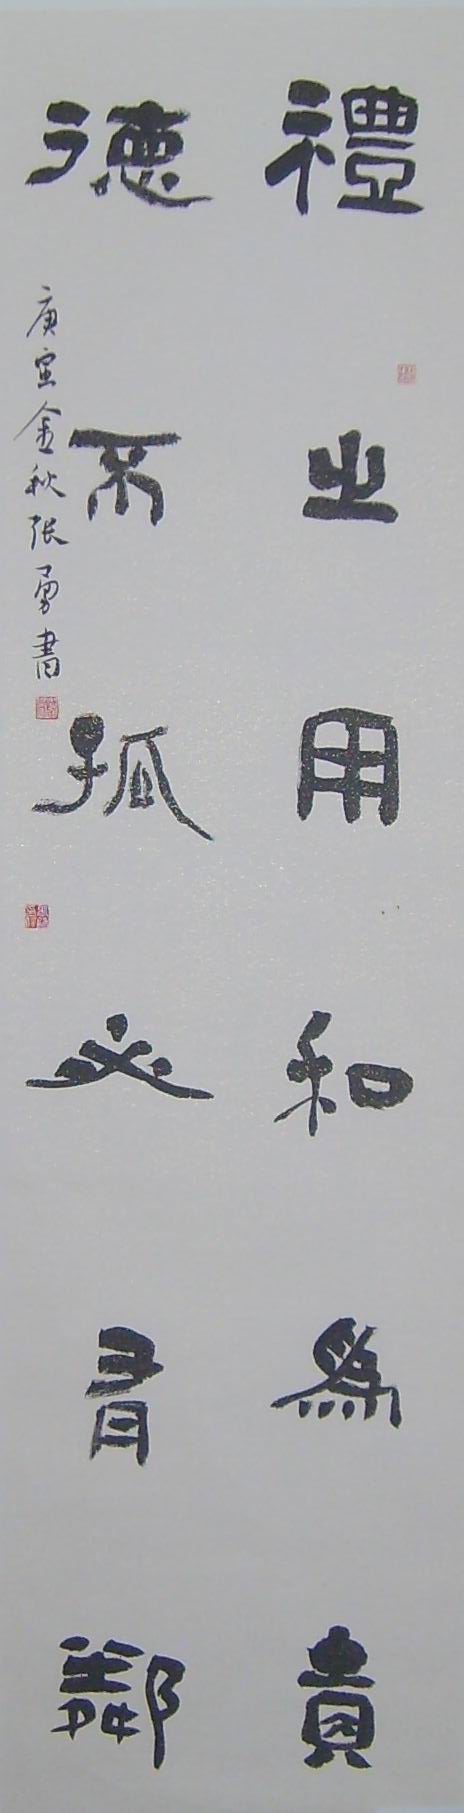 禮之用和為貴
德不孤必有鄰
庚寅金秋张勇書